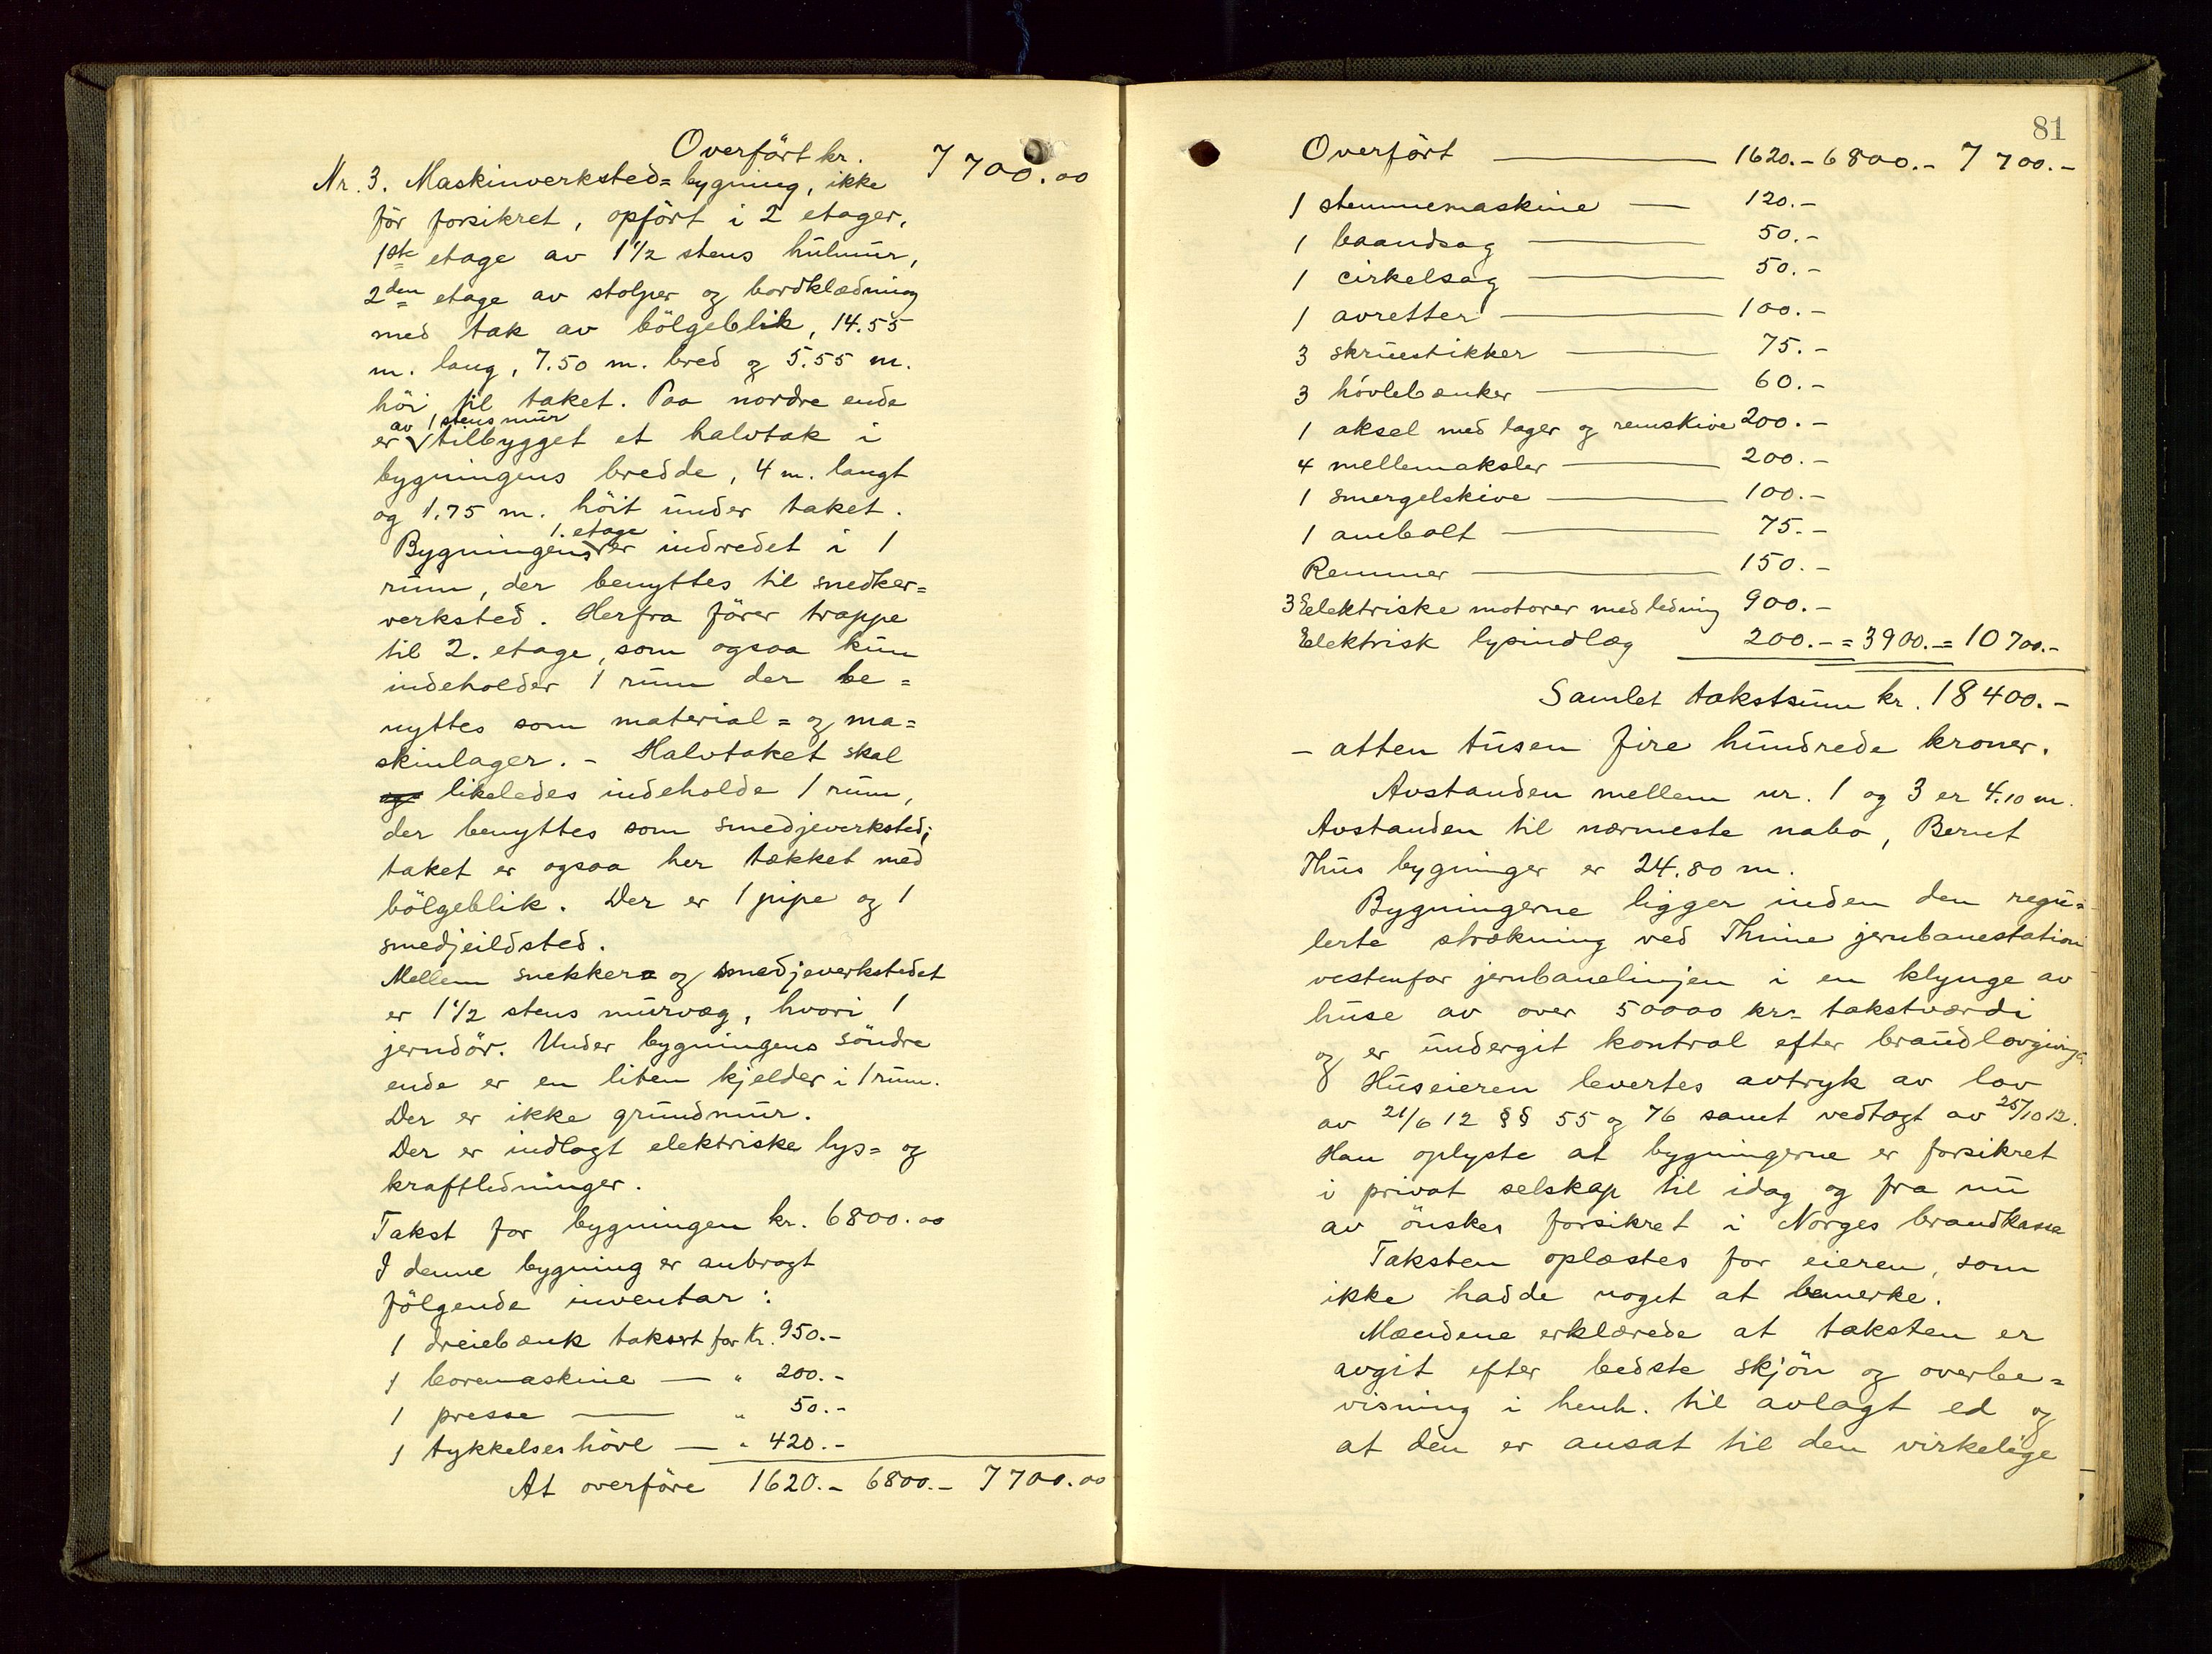 Overført kr. 7700.00
Nr. 3. Maskinverksted=bygning, ikke
før forsikret, opført i 2 etager,
1ste etage av 1 1/2 stens hulmur,
2den etage av stolper og bordklædning
med tak av bölgeblik, 14.55
m. lang, 7.50 m. bred og 5.55 m.
höi til taket. Paa nordre ende
av 1 stens mur
er tilbygget et halvtak i
bygningens bredde, 4 m. langt
og 1.75 m. höit under taket.
1. etage
Bygningens er indredet i 1
rum, der benyttes til snedker=
verksted. Herfra förer trappe
til 2. etage, som ogsaa kun
indeholder 1 rum der be=
nyttes som material= og ma=
skinlager. - Halvtaket skal
likeledes indeholde 1 rum,
der benyttes som smedjeverksted;
taket er ogsaa her tækket med
bölgeblik. Der er 1 pipe og 1
smedjeildsted.
Mellem snekker= og smedjeverkstedet
er 1 1/2 stens murvæg, hvori 1
jerndör. Under bygningens söndre
ende er en liten kjelder i 1 rum.
Der er ikke grundmur.
Der er indlagt elektriske lys= og
kraftledninger.
Takst for bygningen kr. 6800.00
I denne bygning er anbragt
fölgende inventar:
1 dreiebænk taksert for Kr. 950.-
1 boremaskine — " 200.-
1 presse — " 50.-
1 tykkelseshövl — " 420.-
At overföre 1620.- 6800.- 7700.00
81
Overfört — 1620.- 6800.- 7700.-
1 stemmemaskine — 120.-
1 baandsag — 50.-
1 cirkelsag — 50.-
1 avretter — 100.-
3 skruestikker — 75.-
3 hövlebænker — 60.-
1 aksel med lager og remskive 200.-
4 mellemaksler — 200.-
1 smergelskive — 100.-
1 ambolt — 75.-
Remmer — 150.-
3 Elektriske motorer med ledning 900.-
Elektrisk lysindlæg 200.- = 3900.- = 10700.-
Samlet takstsum kr. 18400.-
- atten tusen fire hundrede kroner.
Avstanden mellem nr. 1 og 3 er 4.10 m.
Avstanden til nærmeste nabo, Bernt
Thus bygninger er 24.80 m.
Bygningerne ligger inden den regu=
lerte strækning ved Thime jernbanestation
vestenfor jernbanelinjen i en klynge av
huse av over 50000 kr= takstværdi
og er undergit kontrol efter brandlovgivng.
Huseieren levertes avtryk av lov
av 21/6 12 §§ 55 og 76 samt vedtægt av 25/10 12.
Han oplyste at bygningerne er forsikret
i privat selskap til idag og fra nu
av önskes forsikret i Norges brandkasse
Taksten oplæstes for eieren, som
ikke hadde noget at bemerke.
Mændene erklærede at taksten er
avgit efter bedste skjön og overbe=
visning i henh. til avlagt ed og
at den er ansat til den virkelige